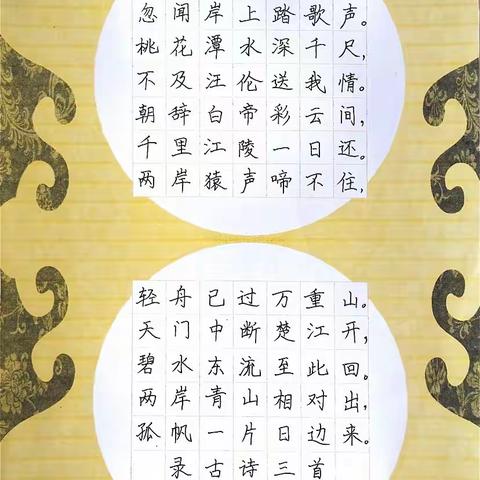 忽闻岸上踏歌声。
桃花潭水深千尺，
不及汪伦送我情。
朝辞白帝彩云间，
千里江陵一日还。
两岸猿声啼不住，
轻舟已过万重山。
天门中断楚江开，
碧水东流至此回。
两岸青山相对出，
孤帆一片日边来。
录古诗三首